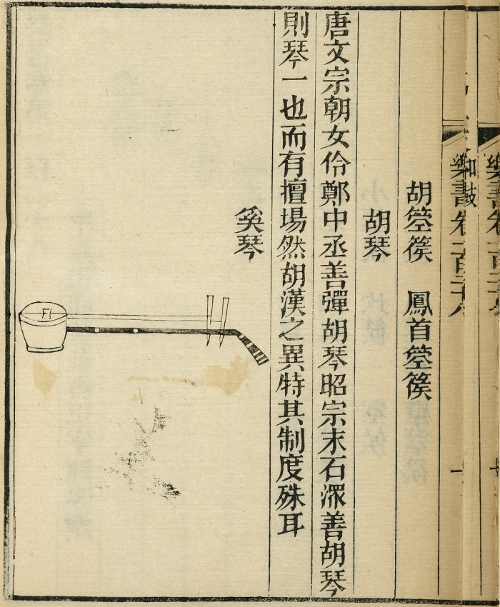 樂書卷一百二十八
胡箜篌　鳳首箜篌
胡琴
唐文宗朝女伶鄭中丞善彈胡琴昭宗末石潨善胡琴
則琴一也而有擅場然胡漢之異特其制度殊耳
奚琴